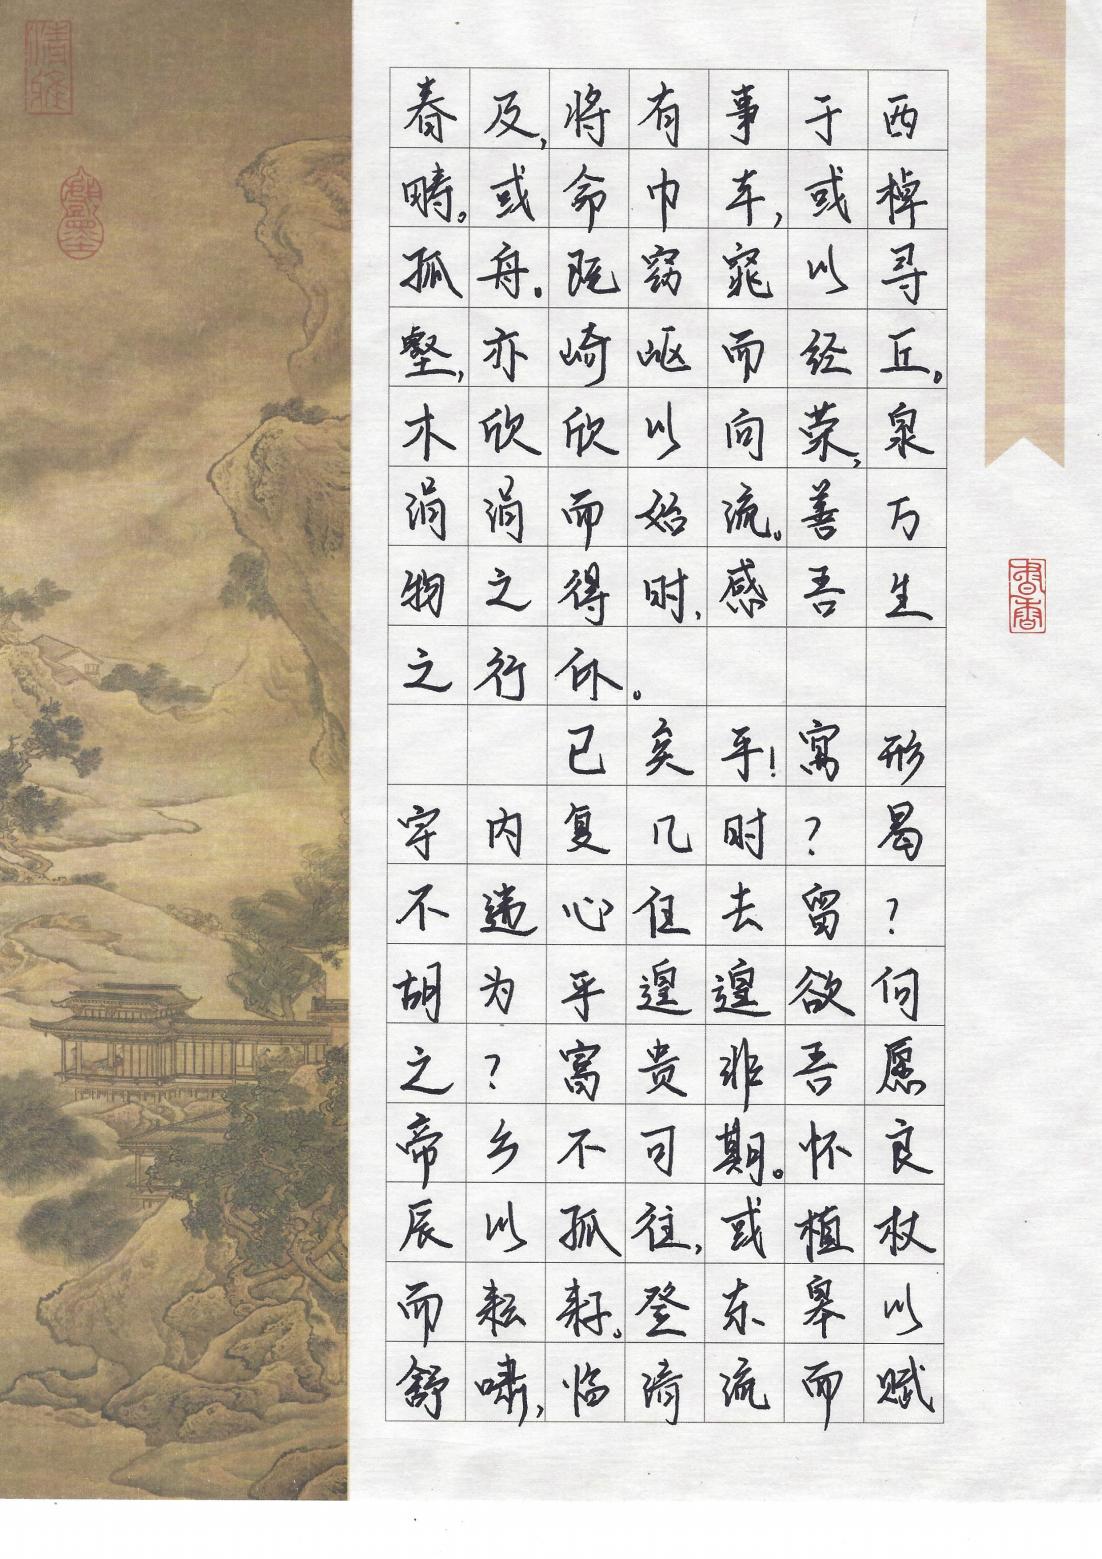 清雅
翰墨
春及，将有事于西
畴。或命巾车，或棹
孤舟。既窈窕以寻
壑，亦崎岖而经丘。
木欣欣以向荣，泉
涓涓而始流。善万
物之得时，感吾生
之行休。
已矣乎！寓形
宇内复几时？曷
不委心任去留？
胡为乎遑遑欲何
之？富贵非吾愿
帝乡不可期。怀良
辰以孤往，或植杖
而耘耔。登东皋以
舒啸，临清流而赋
书香